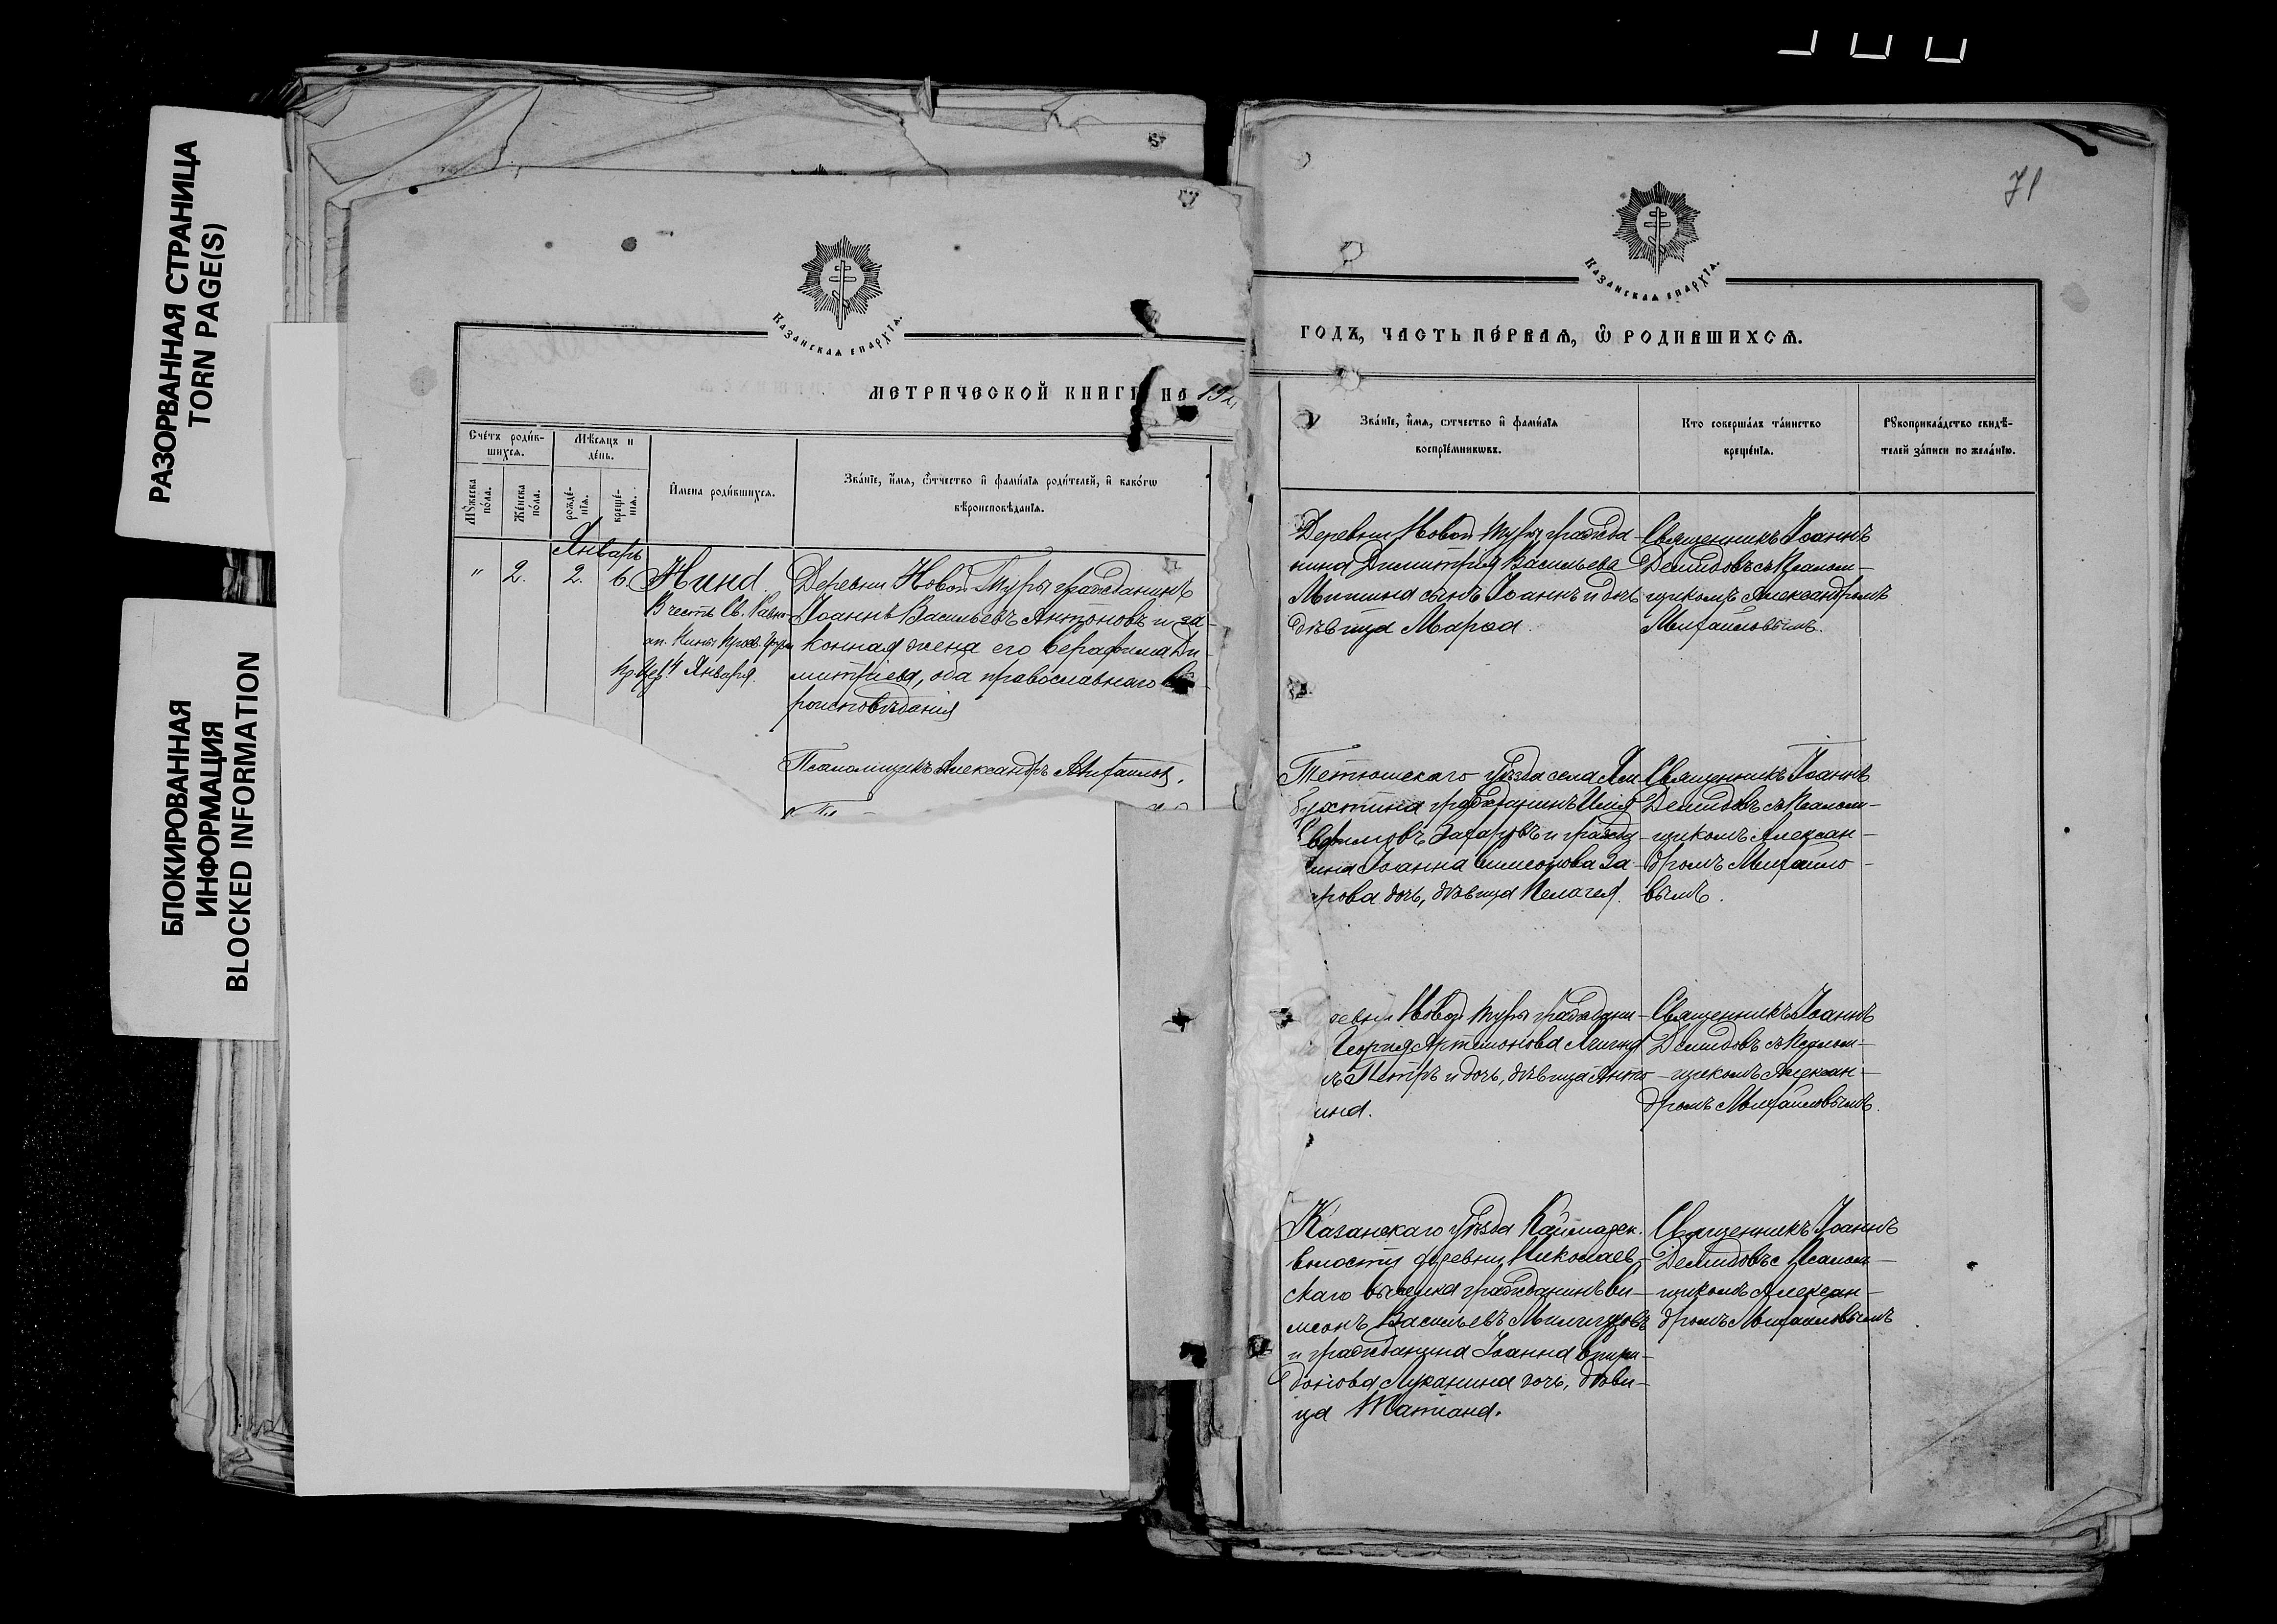 РАЗОРВАННАЯ СТРАНИЦА
TORN PAGE(S)
БЛОКИРОВАННАЯ
ИНФОРМАЦИЯ
BLOCKED INFORMATION
КАЗАНСКАЯ ЕПАРХІЯ.
МЕТРИЧЕСКОЙ КНИГИ НА 19
Счетъ родив-
шихся.
Мѣсяцъ и
день.
Мужеска
пола.
Женска
пола.
рожде-
нія.
креще-
нія.
Имена родившихся.
Званіе, имя, отчество и фамилія родителей, и какогѡ
вѣроисповѣданія.
Январь
" 2. 2. 6 Нина
В честь Св. Равно-
ап. Нины Просв. Грузіи
14 Января.
Деревни Новой Туры гражданинъ
Іоаннъ Васильевъ Антоновъ и за-
конная жена его Серафима Ди-
митріева, оба православнаго вѣ-
роисповѣданія
Псаломщикъ Александръ Михайловъ.
71
КАЗАНСКАЯ ЕПАРХІЯ.
ГОДЪ, ЧАСТЬ ПЕРВАЯ, Ѡ РОДИВШИХСЯ.
Званіе, имя, ѡтчество и фамилія
воспріемниковъ.
Кто совершалъ таинство
крещенія.
Рукоприкладство свидѣ-
телей записи по желанію.
Деревни Новой Туры гражда-
нина Димитрія Васильева
Мишина сынъ Іоаннъ и дочь
дѣвица Марѳа.
Священникъ Іоаннъ
Демидовъ съ Псалом-
щикомъ Александромъ
Михайловымъ.
Тетюшскаго уѣзда села
гражданинъ Илія
Захаровъ и гражда
нина Іоанна Симеонова За-
харова дочь, дѣвица Пелагея.
Священникъ Іоаннъ
Демидовъ съ Псалом-
щикомъ Алексан-
дромъ Михайло-
вымъ.
ревни Новой Туры граждани-
Георгія Артемонова
нъ Петръ и дочь, дѣвица Анто-
нина.
Священникъ Іоаннъ
Демидовъ съ Псалом-
щикомъ Алексан-
дромъ Михайловымъ.
Казанскаго уѣзда Каймарск.
волости деревни Николаев-
скаго выселка гражданинъ Си-
меонъ Васильевъ
и гражданина Іоанна Спири-
донова Луканина дочь, дѣви-
ца Татіана.
Священникъ Іоаннъ
Демидовъ съ Псалом-
щикомъ Алексан-
дромъ Михайловымъ